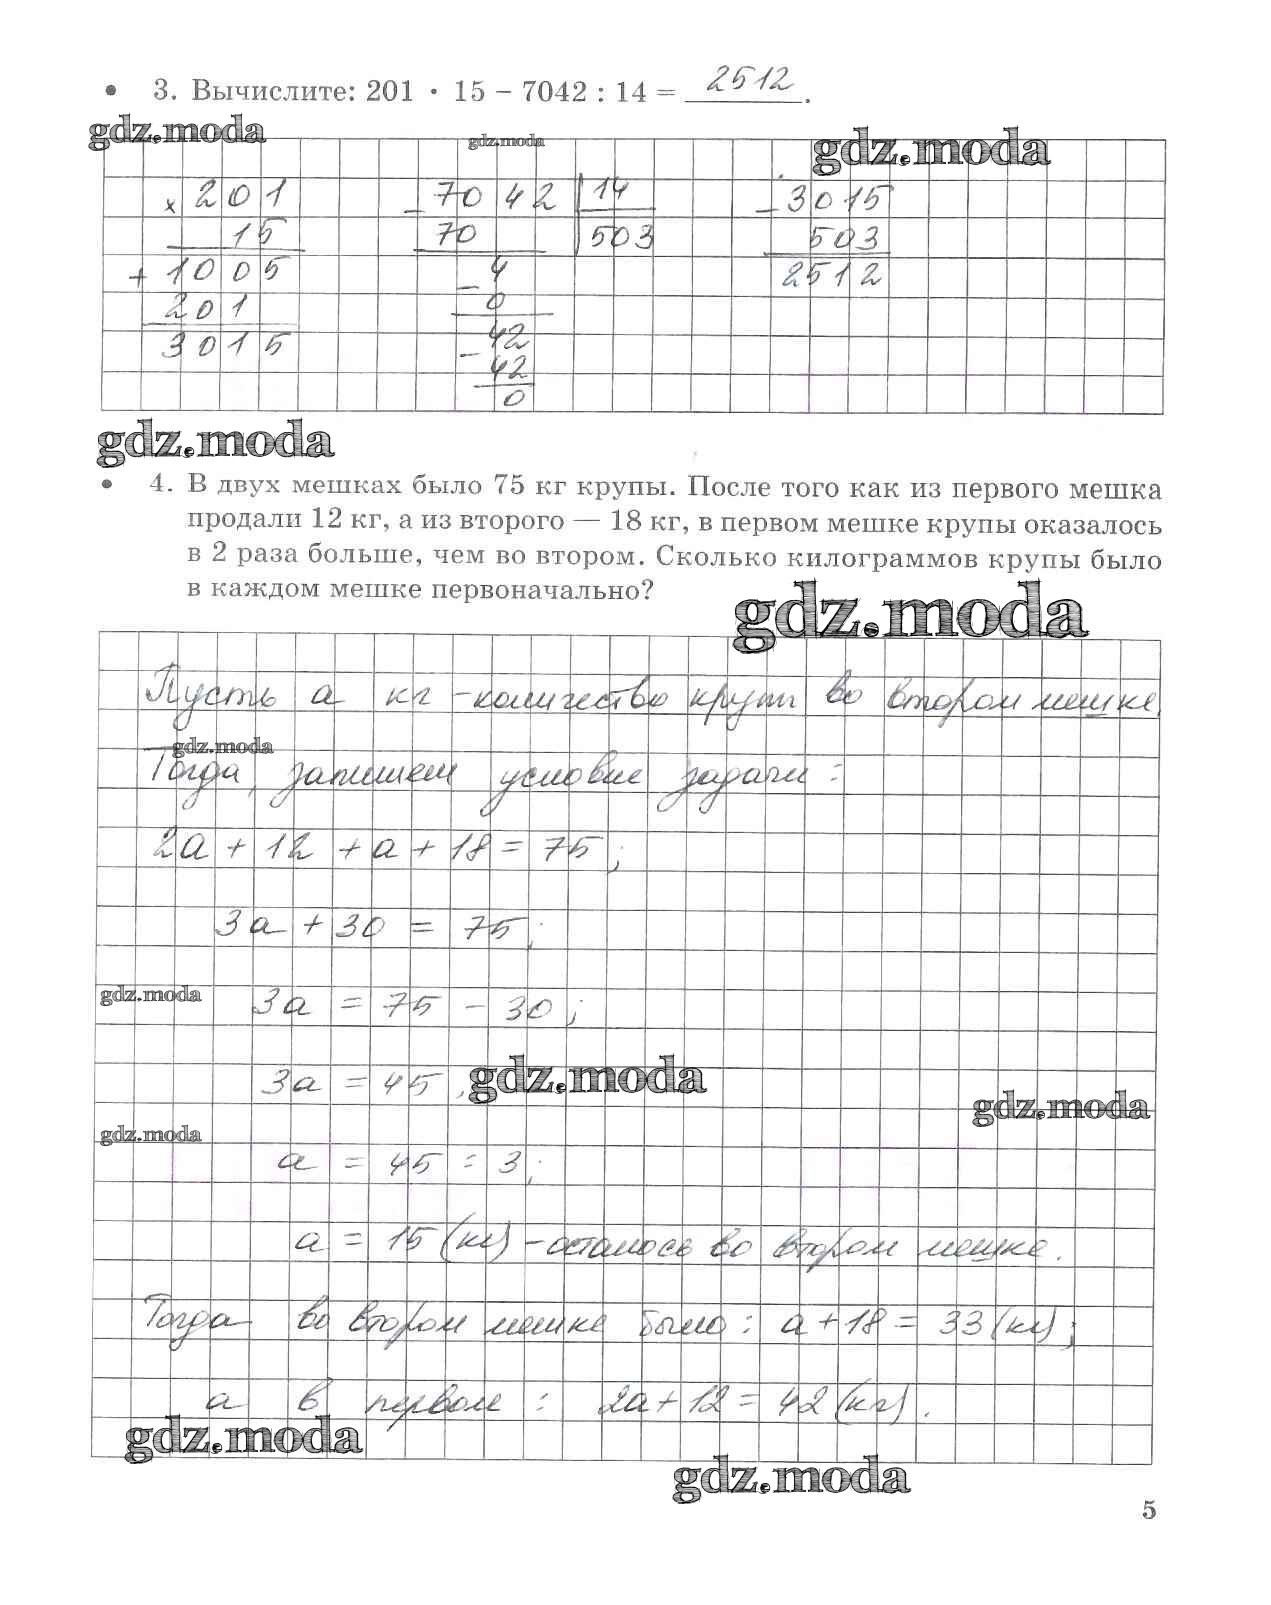 3. Вычислите: 201 · 15 – 7042 : 14 = 2512.
gdz.moda gdz.moda gdz.moda
× 201 – 7042 14 – 3015
15 70 503 503
+ 1005 – 4 2512
201 0
3015 – 42
42
0
gdz.moda
4. В двух мешках было 75 кг крупы. После того как из первого мешка
продали 12 кг, а из второго — 18 кг, в первом мешке крупы оказалось
в 2 раза больше, чем во втором. Сколько килограммов крупы было
в каждом мешке первоначально?
gdz.moda
Пусть а кг – количество крупы во втором мешке.
gdz.moda
Тогда, запишем условие задачи:
2а + 12 + а + 18 = 75;
3а + 30 = 75;
gdz.moda
3а = 75 – 30;
3а = 45; gdz.moda
gdz.moda
gdz.moda
а = 45 : 3;
а = 15 (кг) – осталось во втором мешке.
Тогда во втором мешке было: а + 18 = 33 (кг);
а в первом: 2а + 12 = 42 (кг).
gdz.moda
gdz.moda
5